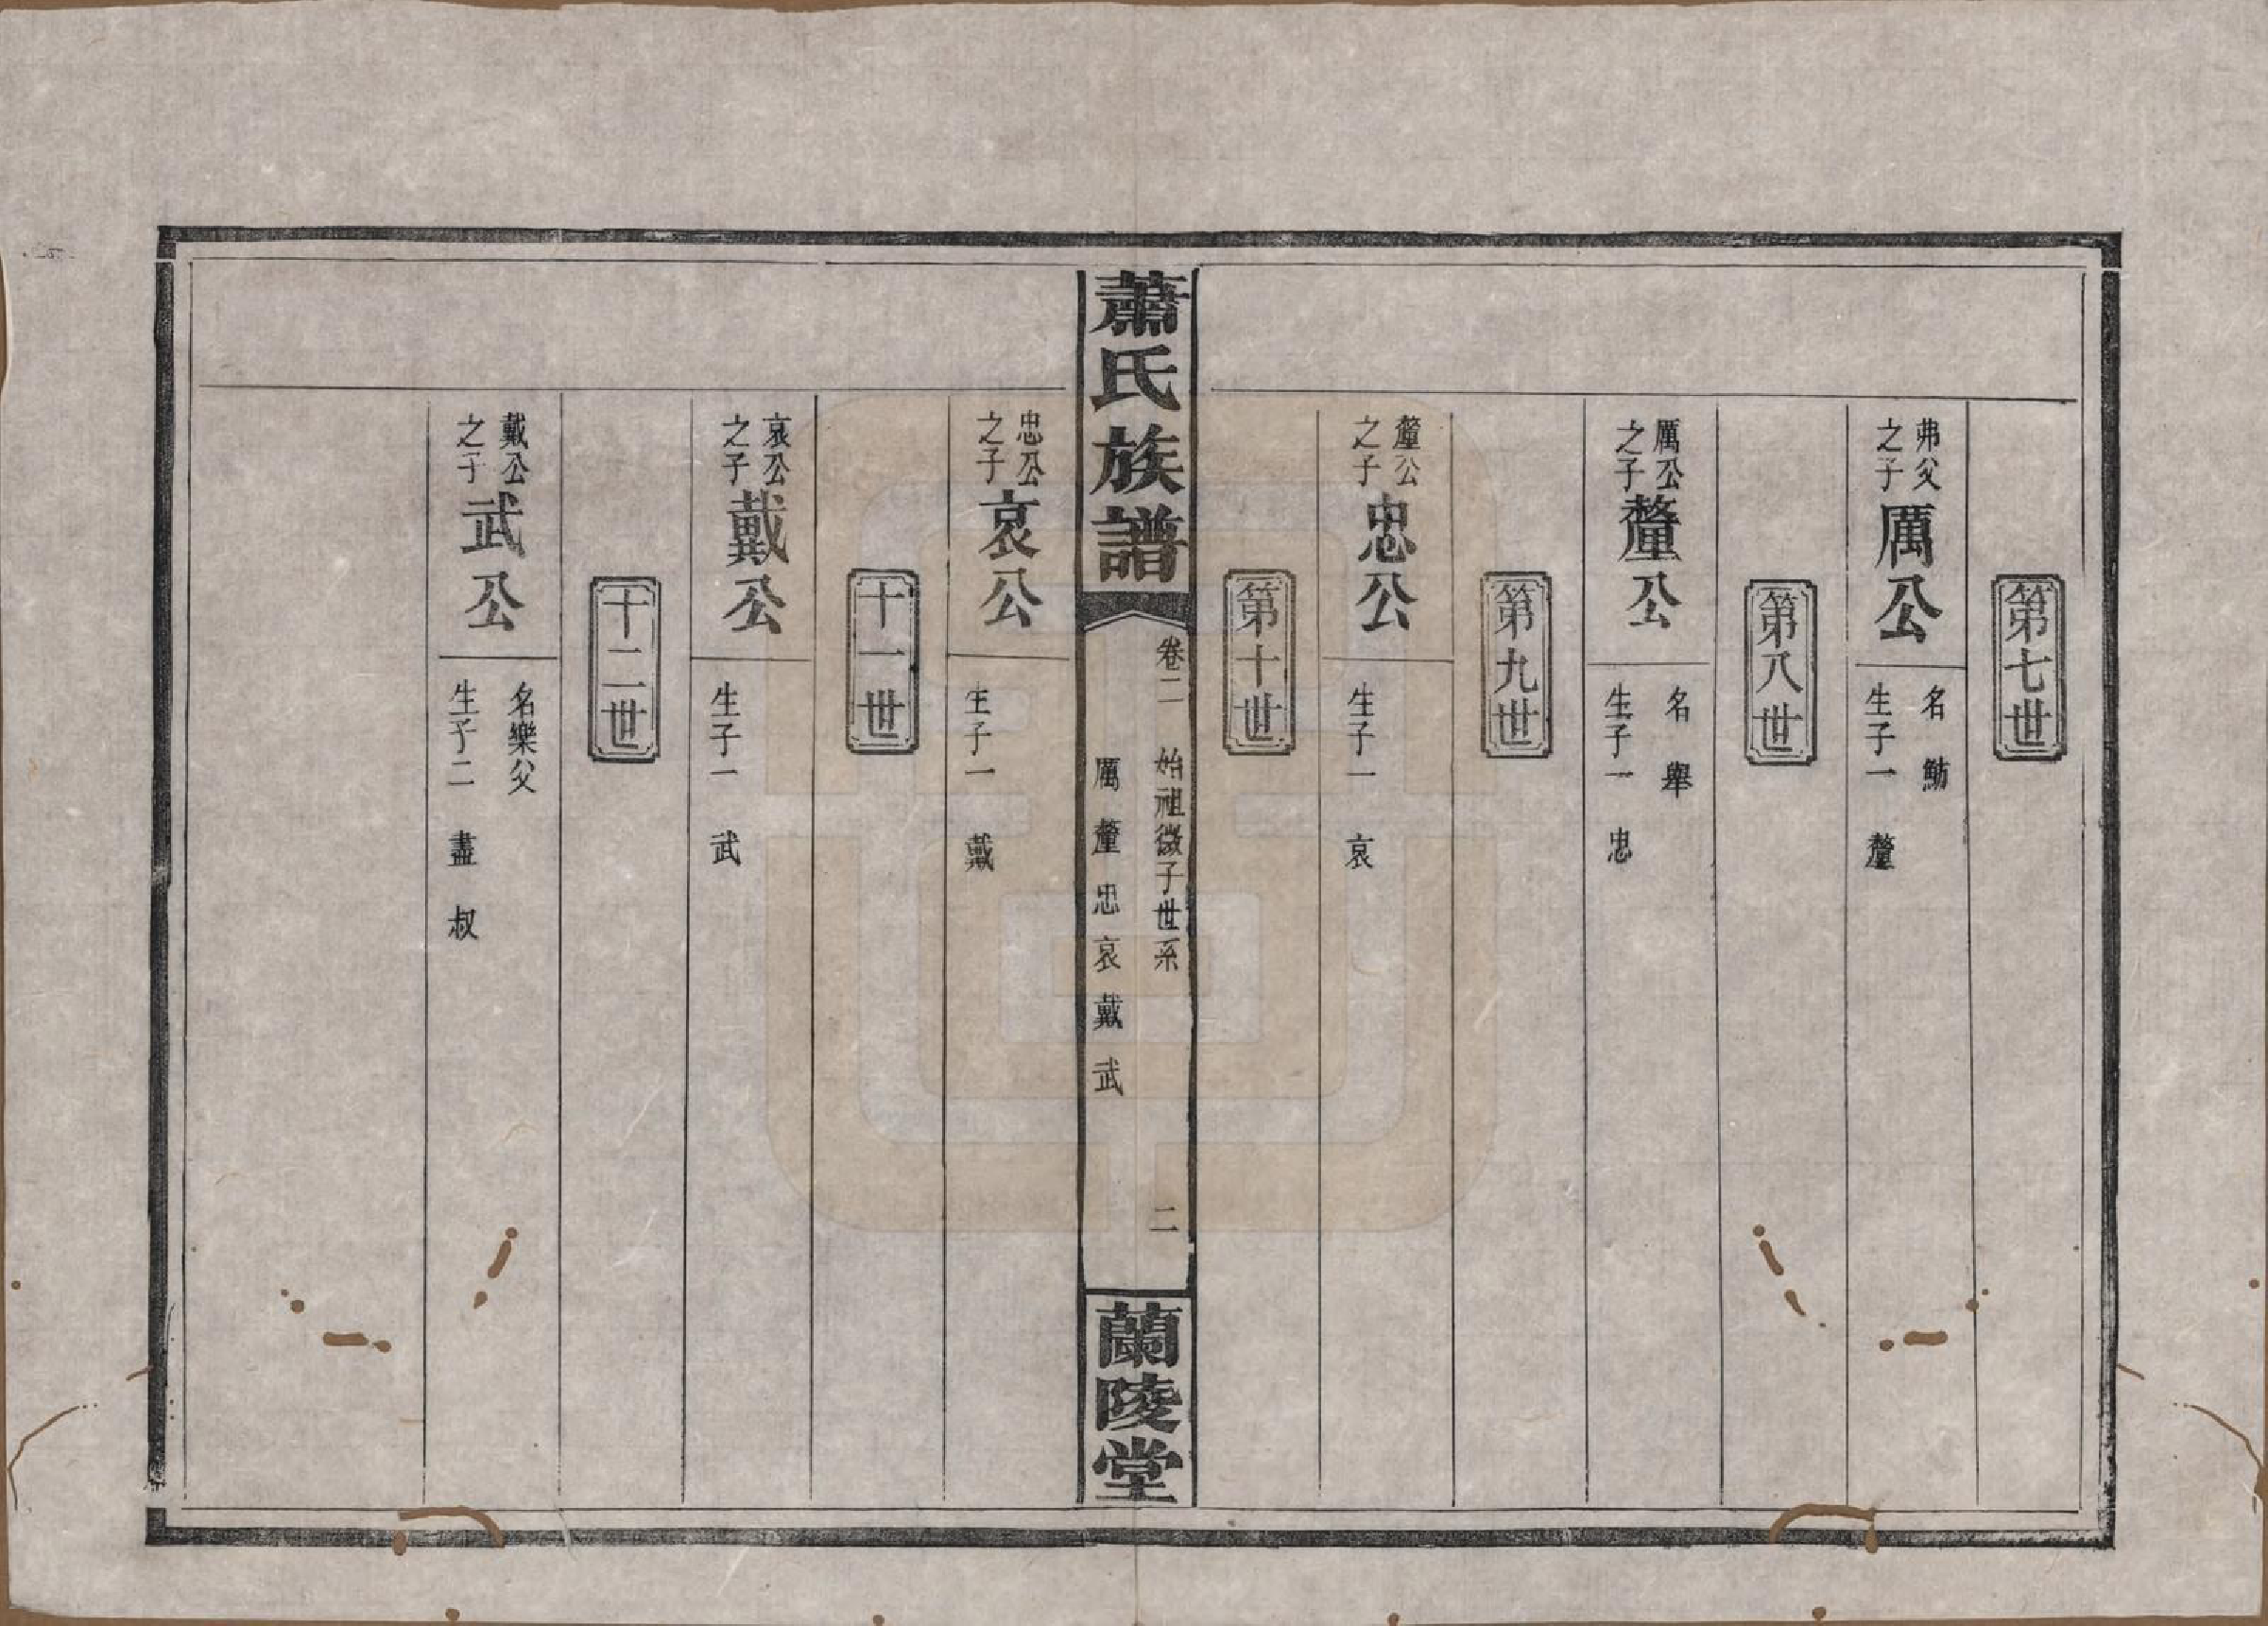 第七世
弗父
之子
厲公
名鮒
生子一 釐
第八世
厲公
之子
釐公
名舉
生子一 忠
第九世
釐公
之子
忠公
生子一 哀
第十世
蕭氏族譜
卷二 始祖微子世系 二
厲釐忠哀戴武
蘭陵堂
忠公
之子
哀公
生子一 戴
十一世
哀公
之子
戴公
生子一 武
十二世
戴公
之子
武公
名樂父
生子二 盡 叔